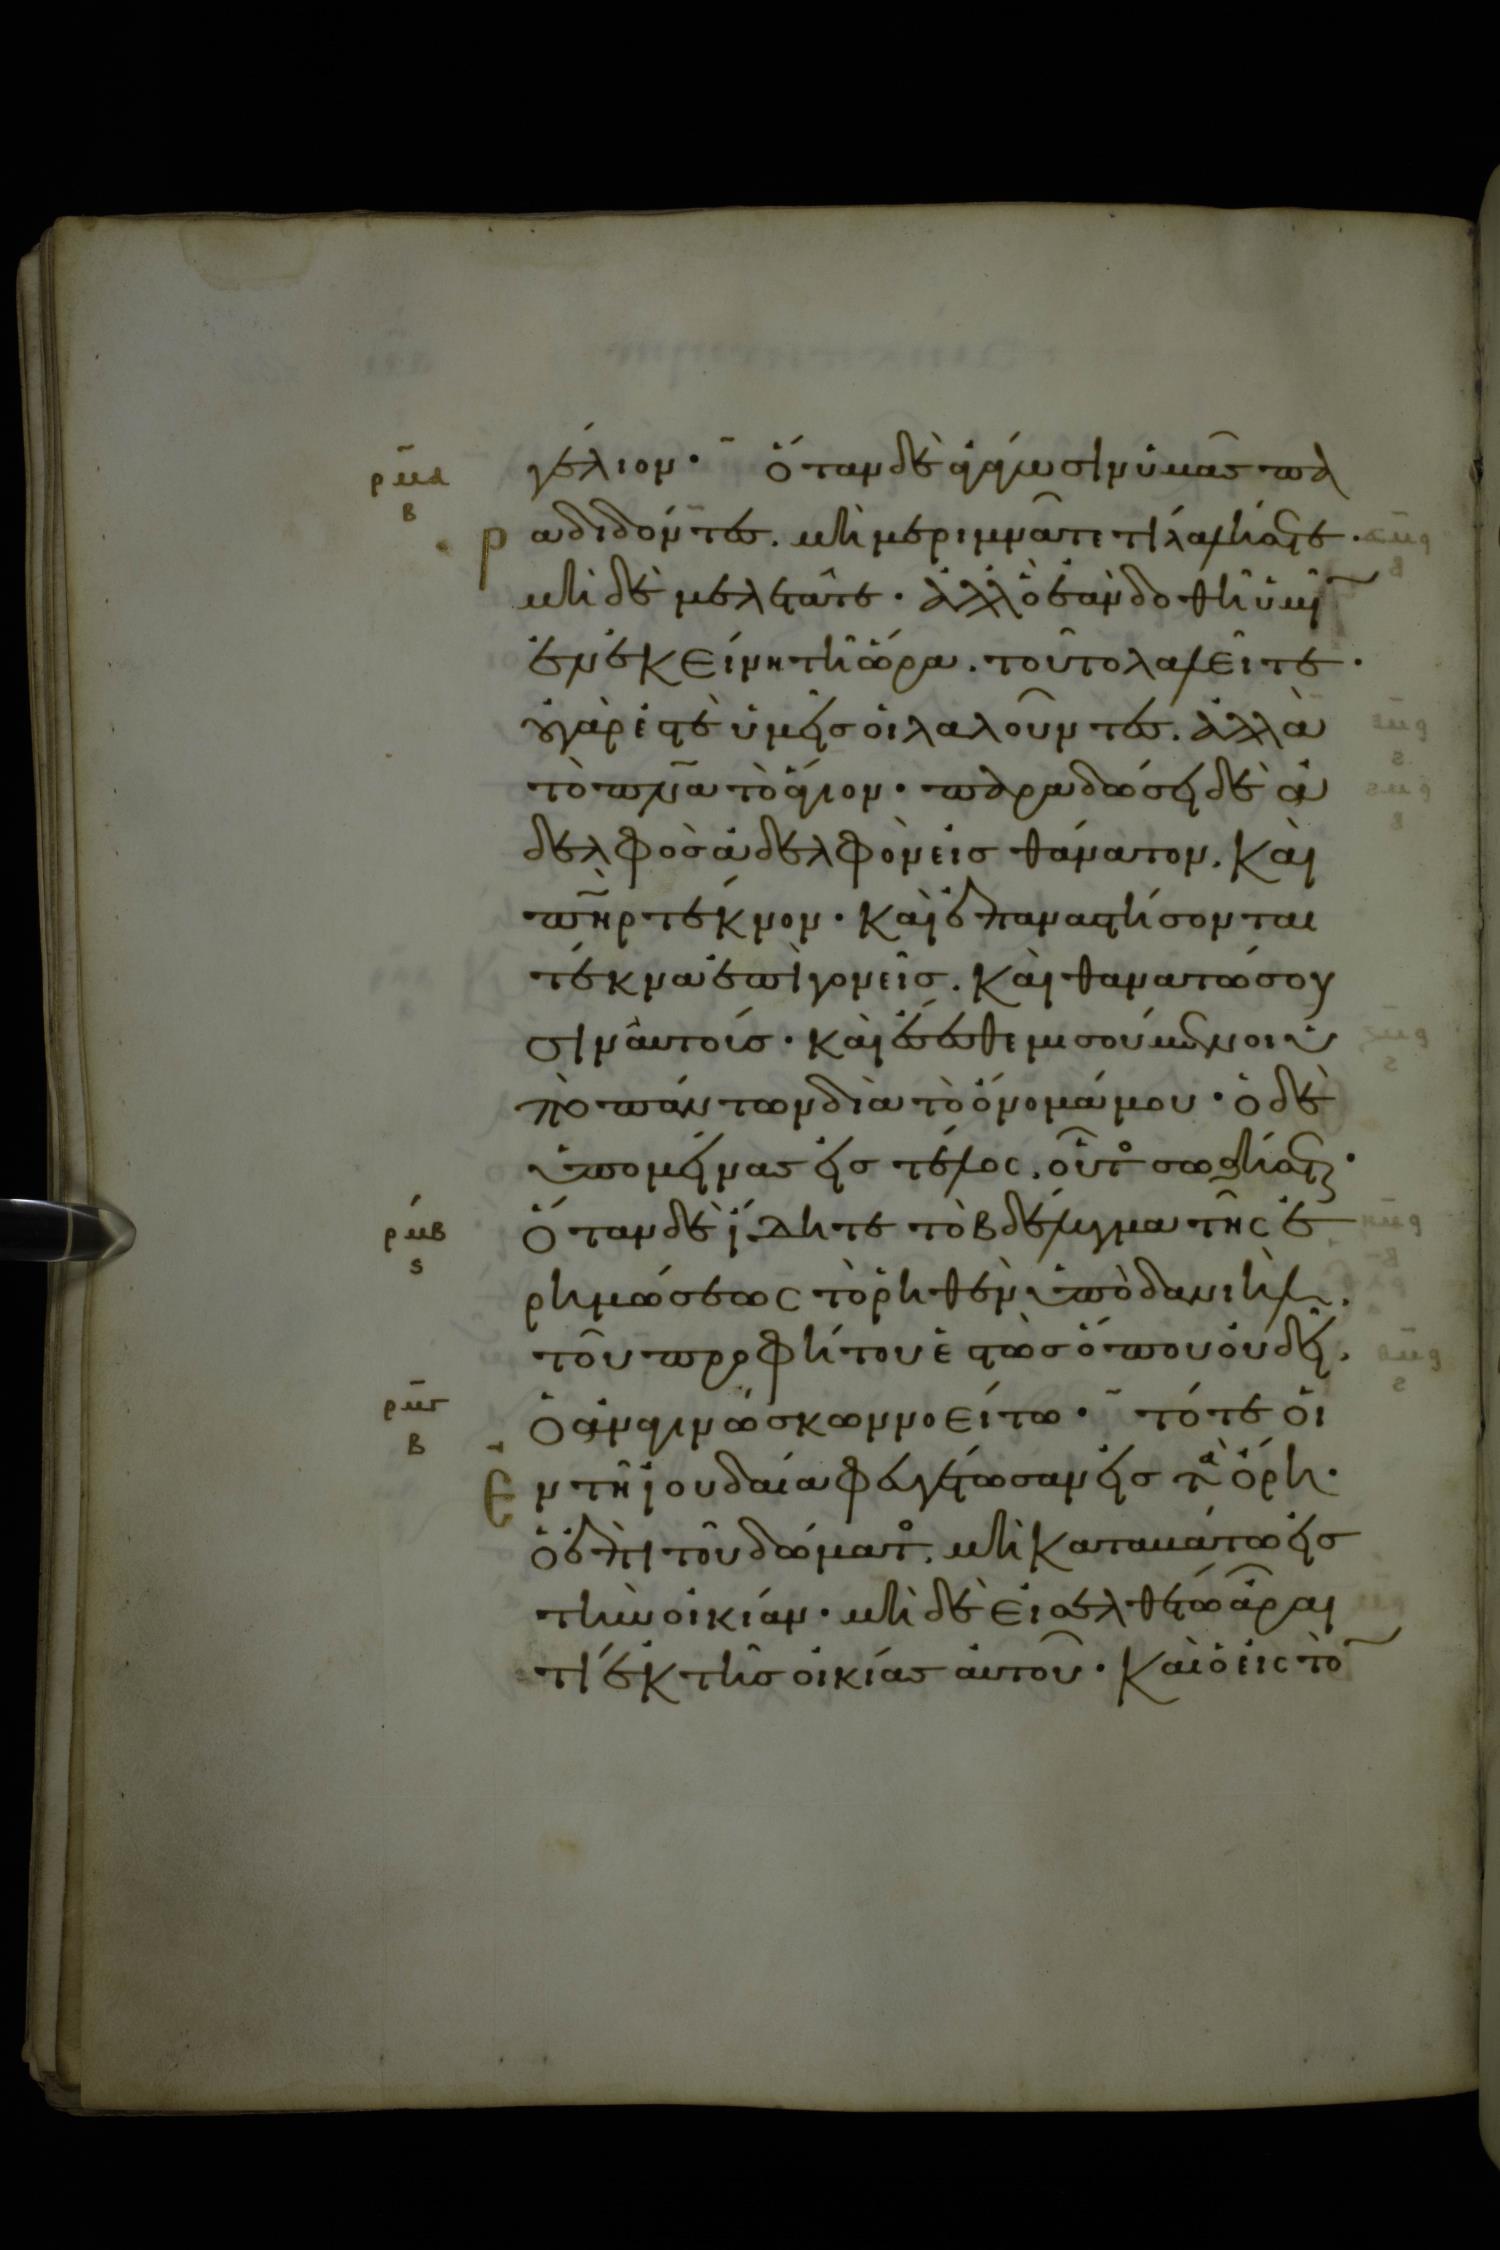 ρμα
β
γέλιον · ὅταν δὲ ἄγωσιν ὑμᾶς πα
ραδιδόντες. μὴ μεριμνᾶτε τί λαλήσητε ·
μὴ δὲ μελετᾶτε · ἀλλ ὃ ἐὰν δοθῆ ὑμῖ
ἐν ἐκείνη τῆ ὥρα. τοῦτο λαλεῖτε ·
οὐ γάρ ἐστὲ ὑμεῖς οἱ λαλοῦντες. ἀλλὰ
τὸ πνᾶ τὸ ἅγιον · παραδώσει δὲ ἀ
δελφὸς ἀδελφὸν εἰς θάνατον. καὶ
πὴρ τέκνον · καὶ ἐπαναστήσονται
τέκνα ἐπὶ γονεῖς. καὶ θανατώσου
σιν αὐτούς · καὶ ἔσεσθε μισούμενοι ὑ
πὸ πάντων διὰ τὸ ὄνομά μου · ὁ δὲ
ὑπομείνας εἰς τέλος. οὗτος σωθήσεται ·
ρμβ
ς
Ὅταν δὲ ἴδητε τὸ βδέλυγμα τῆς ἐ
ρημώσεως τὸ ῥηθὲν ὑπὸ δανιὴλ.
τοῦ προφήτου ἑστὼς ὅπου οὐ δεῖ.
ρμγ
β
Ὁ ἀναγινώσκων νοείτω · τότε οἱ
ἐν τῆ ἰουδαία φευγέτωσαν εἰς τὰ ὄρη ·
ὁ ἐπὶ τοῦ δώματος. μὴ καταβάτω εἰς
τὴν οἰκίαν · μὴ δὲ εἰσελθέτω ἆραι
τί ἐκ τῆς οἰκίας αὐτοῦ · καὶ ὁ εἰς τὸ